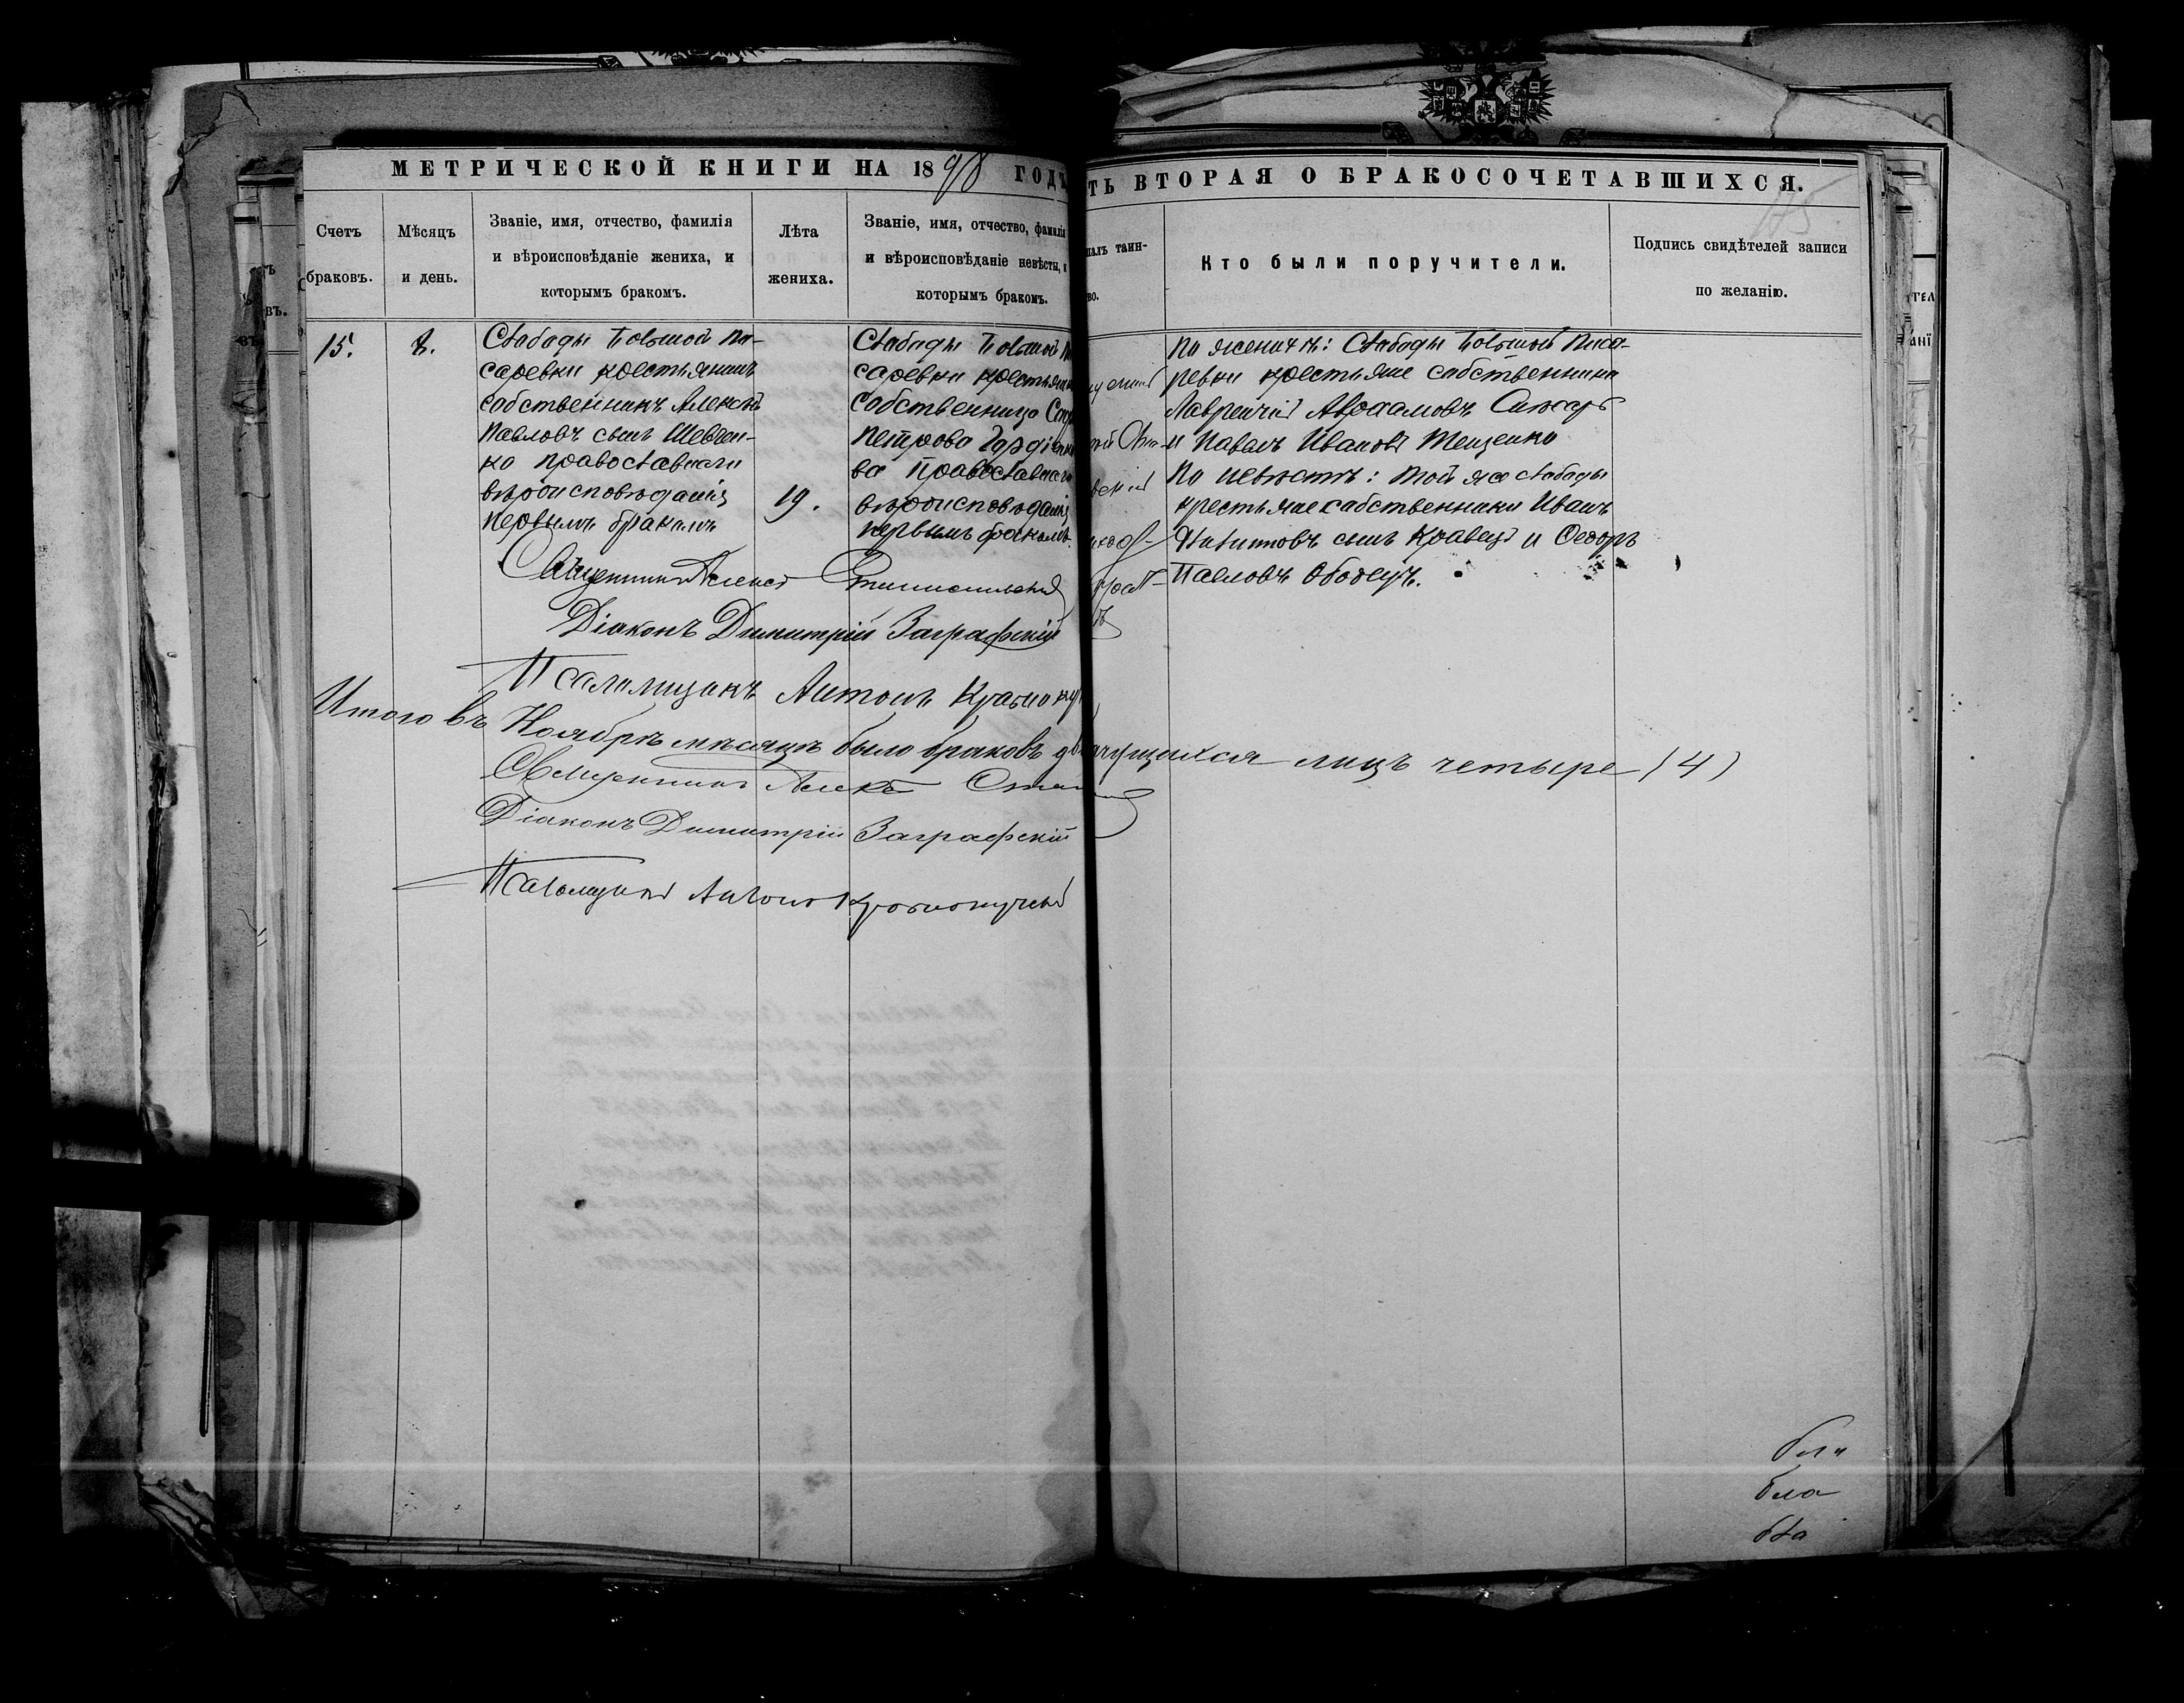 МЕТРИЧЕСКОЙ КНИГИ НА 1898 ГОДЪ
ТЬ ВТОРАЯ О БРАКОСОЧЕТАВШИХСЯ.
Счетъ браковъ.
Мѣсяцъ и день.
Званіе, имя, отчество, фамилія
и вѣроисповѣданіе жениха, и
которымъ бракомъ.
Лѣта жениха.
Званіе, имя, отчество, фамилія
и вѣроисповѣданіе невѣсты, и
которымъ бракомъ.
Кто были поручители.
Подпись свидѣтелей записи
по желанію.
15.
8.
Слободы Большой Пи-
саревки крестьянинъ
собственникъ Алексѣй
Павловъ сынъ Шевчен-
ко православнаго
вѣроисповѣданія
первымъ бракомъ
19.
Слободы Большой
саревки
собственница
Петрова
ва православнаго
вѣроисповѣданія
первымъ бракомъ.
По женихѣ: Слободы Большой Писа-
ревки крестьяне собственники
Лаврентій Аврамовъ
и Павелъ Ивановъ Тещенко
По невѣстѣ: той же слободы
крестьяне собственники Иванъ
сынъ Кравецъ и Ѳеодоръ
Павловъ
Священникъ Алексѣй
Діаконъ Димитрій Заграфскій
Псаломщикъ Антонъ
Итого въ Ноябрѣ мѣсяцѣ было браковъ
лицъ четыре (4)
Священникъ
Діаконъ Димитрій Заграфскій
Псаломщикъ Антонъ Краснокутскій